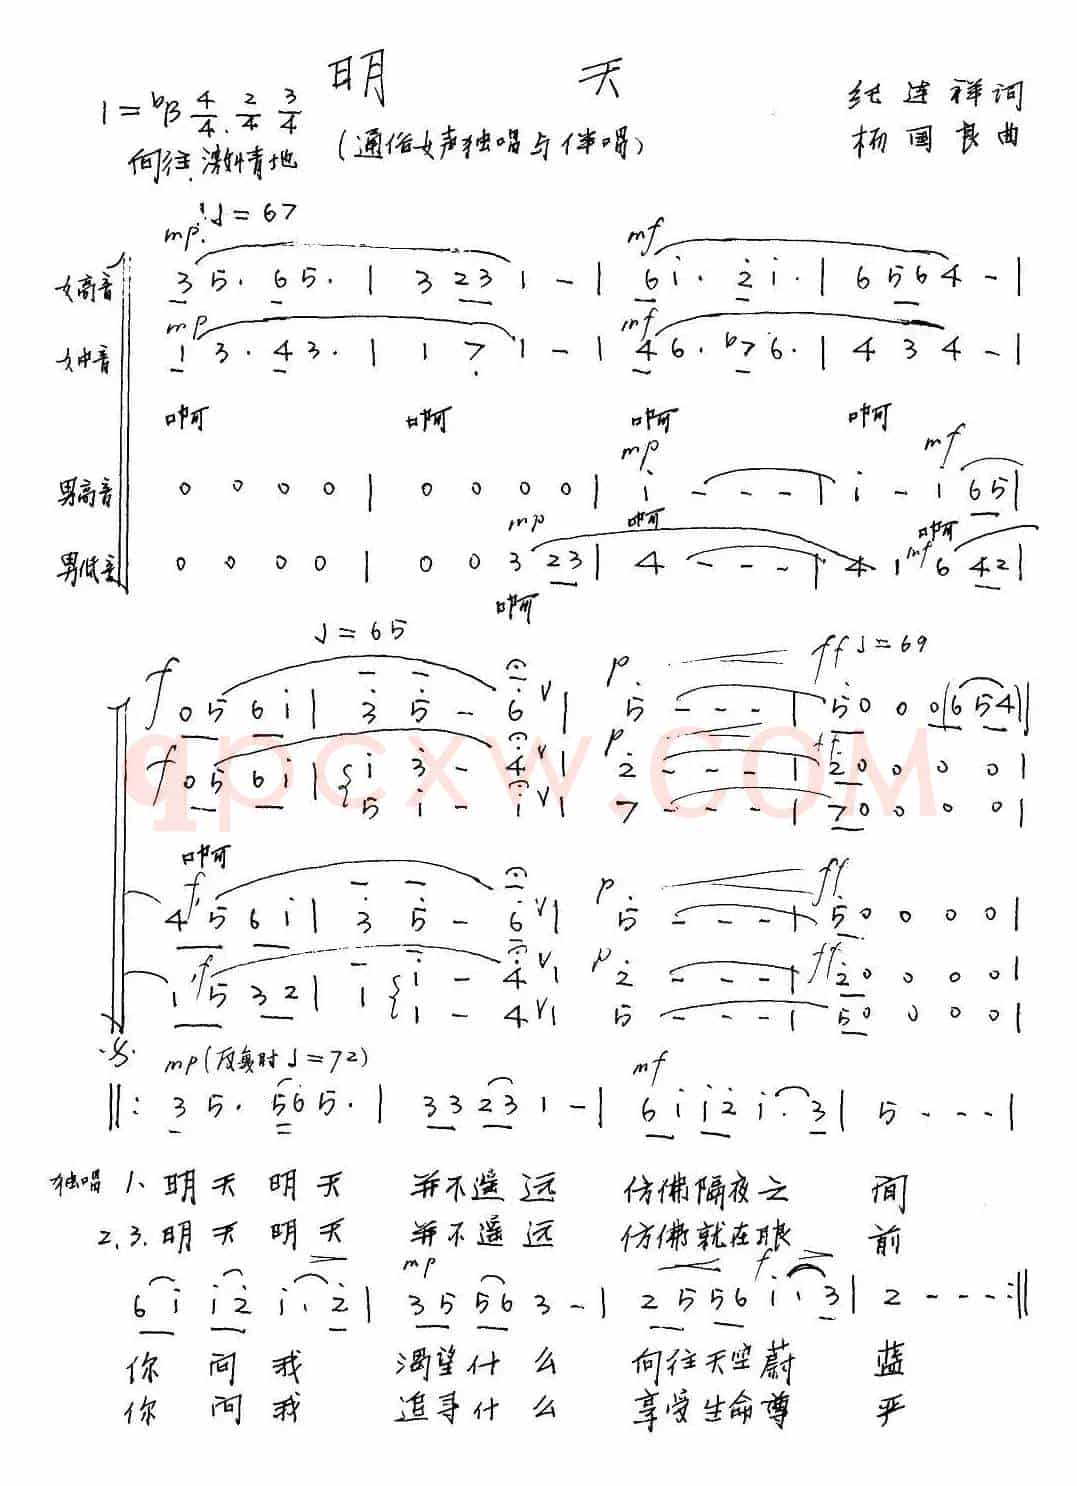 明 天
1=♭B 4/4 2/4 3/4
向往.激情地
(通俗女声独唱与伴唱)
纯连祥词
杨国良曲
♩=67
mp mf
女高音 3 5. 6 5. | 3 2 3 1 - | 6 i. 2 i. | 6 5 6 4 - |
mp mf
女中音 1 3. 4 3. | 1 7 1 - | 4 6. ♭7 6. | 4 3 4 - |
啊 啊 啊 啊
mp mf
男高音 0 0 0 0 | 0 0 0 0 | i - - - | i - i 6 5 |
mp 啊 啊 mf
男低音 0 0 0 0 | 0 0 3 2 3 | 4 - - - | 4 1 6 4 2 |
啊
♩=65 ff ♩=69
f p
0 5 6 i | 3 5 - 6 V | 5 - - - | 5 0 0 0 (6 5 4) |
f p ff
0 5 6 i | i 3 - 4 V | 2 - - - | 2 0 0 0 0 |
5 i - i V | 7 - - - | 7 0 0 0 0 |
啊
f p ff
4 5 6 i | 3 5 - 6 V | 5 - - - | 5 0 0 0 0 |
f p ff
1 5 3 2 | 1 i - 4 V | 2 - - - | 2 0 0 0 0 |
1 - 4 V | 5 - - - | 5 0 0 0 0 |
mp (反复时♩=72) mf
‖: 3 5. 5 6 5. | 3 3 2 3 1 - | 6 i i 2 i. 3 | 5 - - - |
独唱 1、明天 明天 并不遥远 仿佛隔夜之 间
2.3.明天 明天 并不遥远 仿佛就在眼 前
mp f
6 i i 2 i. 2 | 3 5 5 6 3 - | 2 5 5 6 i. 3 | 2 - - - :‖
你 问 我 渴望什么 向往天空蔚 蓝
你 问 我 追寻什么 享受生命尊 严
qpcxw.COM